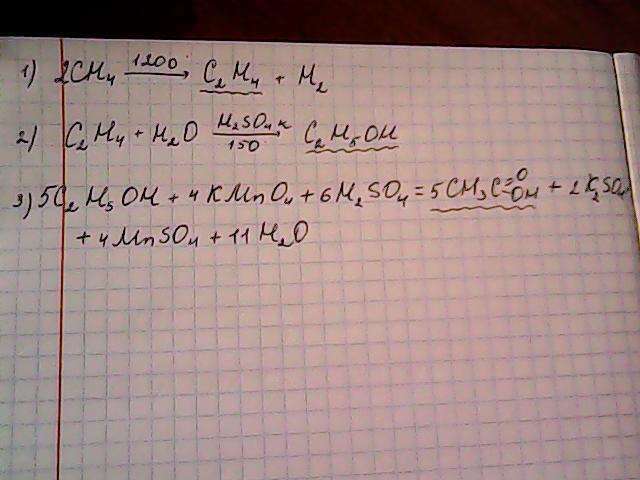 1) 2CH₄ —1200→ C₂H₄ + H₂
2) C₂H₄ + H₂O —H₂SO₄ к / 150→ C₂H₅OH
3) 5C₂H₅OH + 4KMnO₄ + 6H₂SO₄ = 5CH₃C=O OH + 2K₂SO₄
+ 4MnSO₄ + 11H₂O